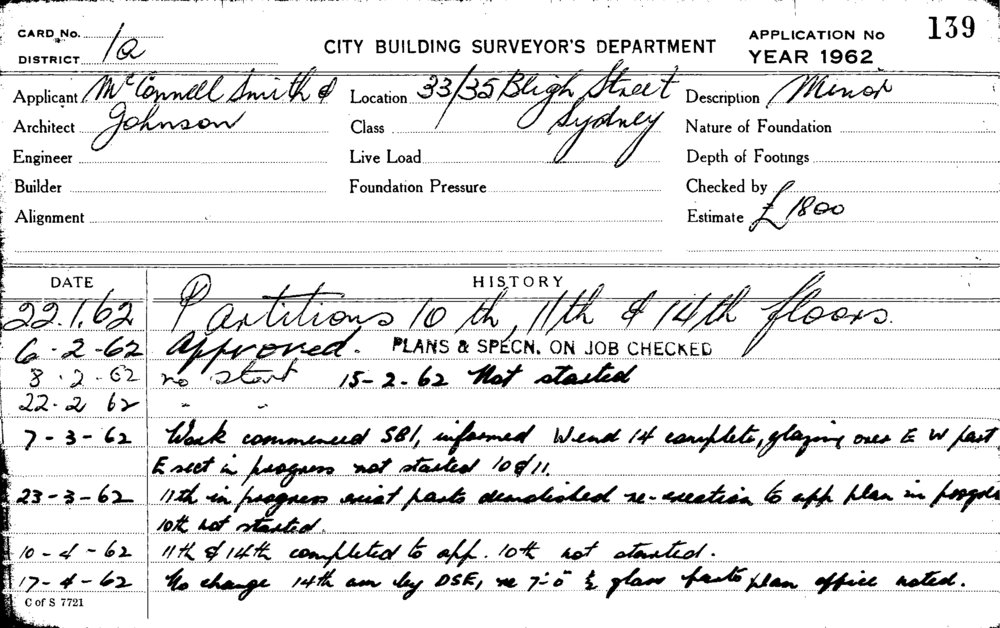 CARD No.
DISTRICT 1a
CITY BUILDING SURVEYOR'S DEPARTMENT
APPLICATION No 139
YEAR 1962
Applicant McConnell Smith &
Architect Johnson
Engineer
Builder
Alignment
Location 33/35 Bligh Street
Class Sydney
Live Load
Foundation Pressure
Description Minor
Nature of Foundation
Depth of Footings
Checked by
Estimate £1800
DATE HISTORY
22.1.62 Partitions 10th, 11th & 14th floors.
6-2-62 Approved. PLANS & SPECN. ON JOB CHECKED
8.2-62 no start 15-2-62 Not started
22-2 62 " "
7-3-62 Work commenced SBI, informed W end 14 complete, glazing over E W part
E sect in progress not started 10 & 11.
23-3-62 11th in progress exist parts demolished re-erection to app plan in progress
10th not started.
10-4-62 11th & 14th completed to app. 10th not started.
17-4-62 No change 14th am by DSE, re 7'-0" ½ glass parts plan office noted.
C of S 7721